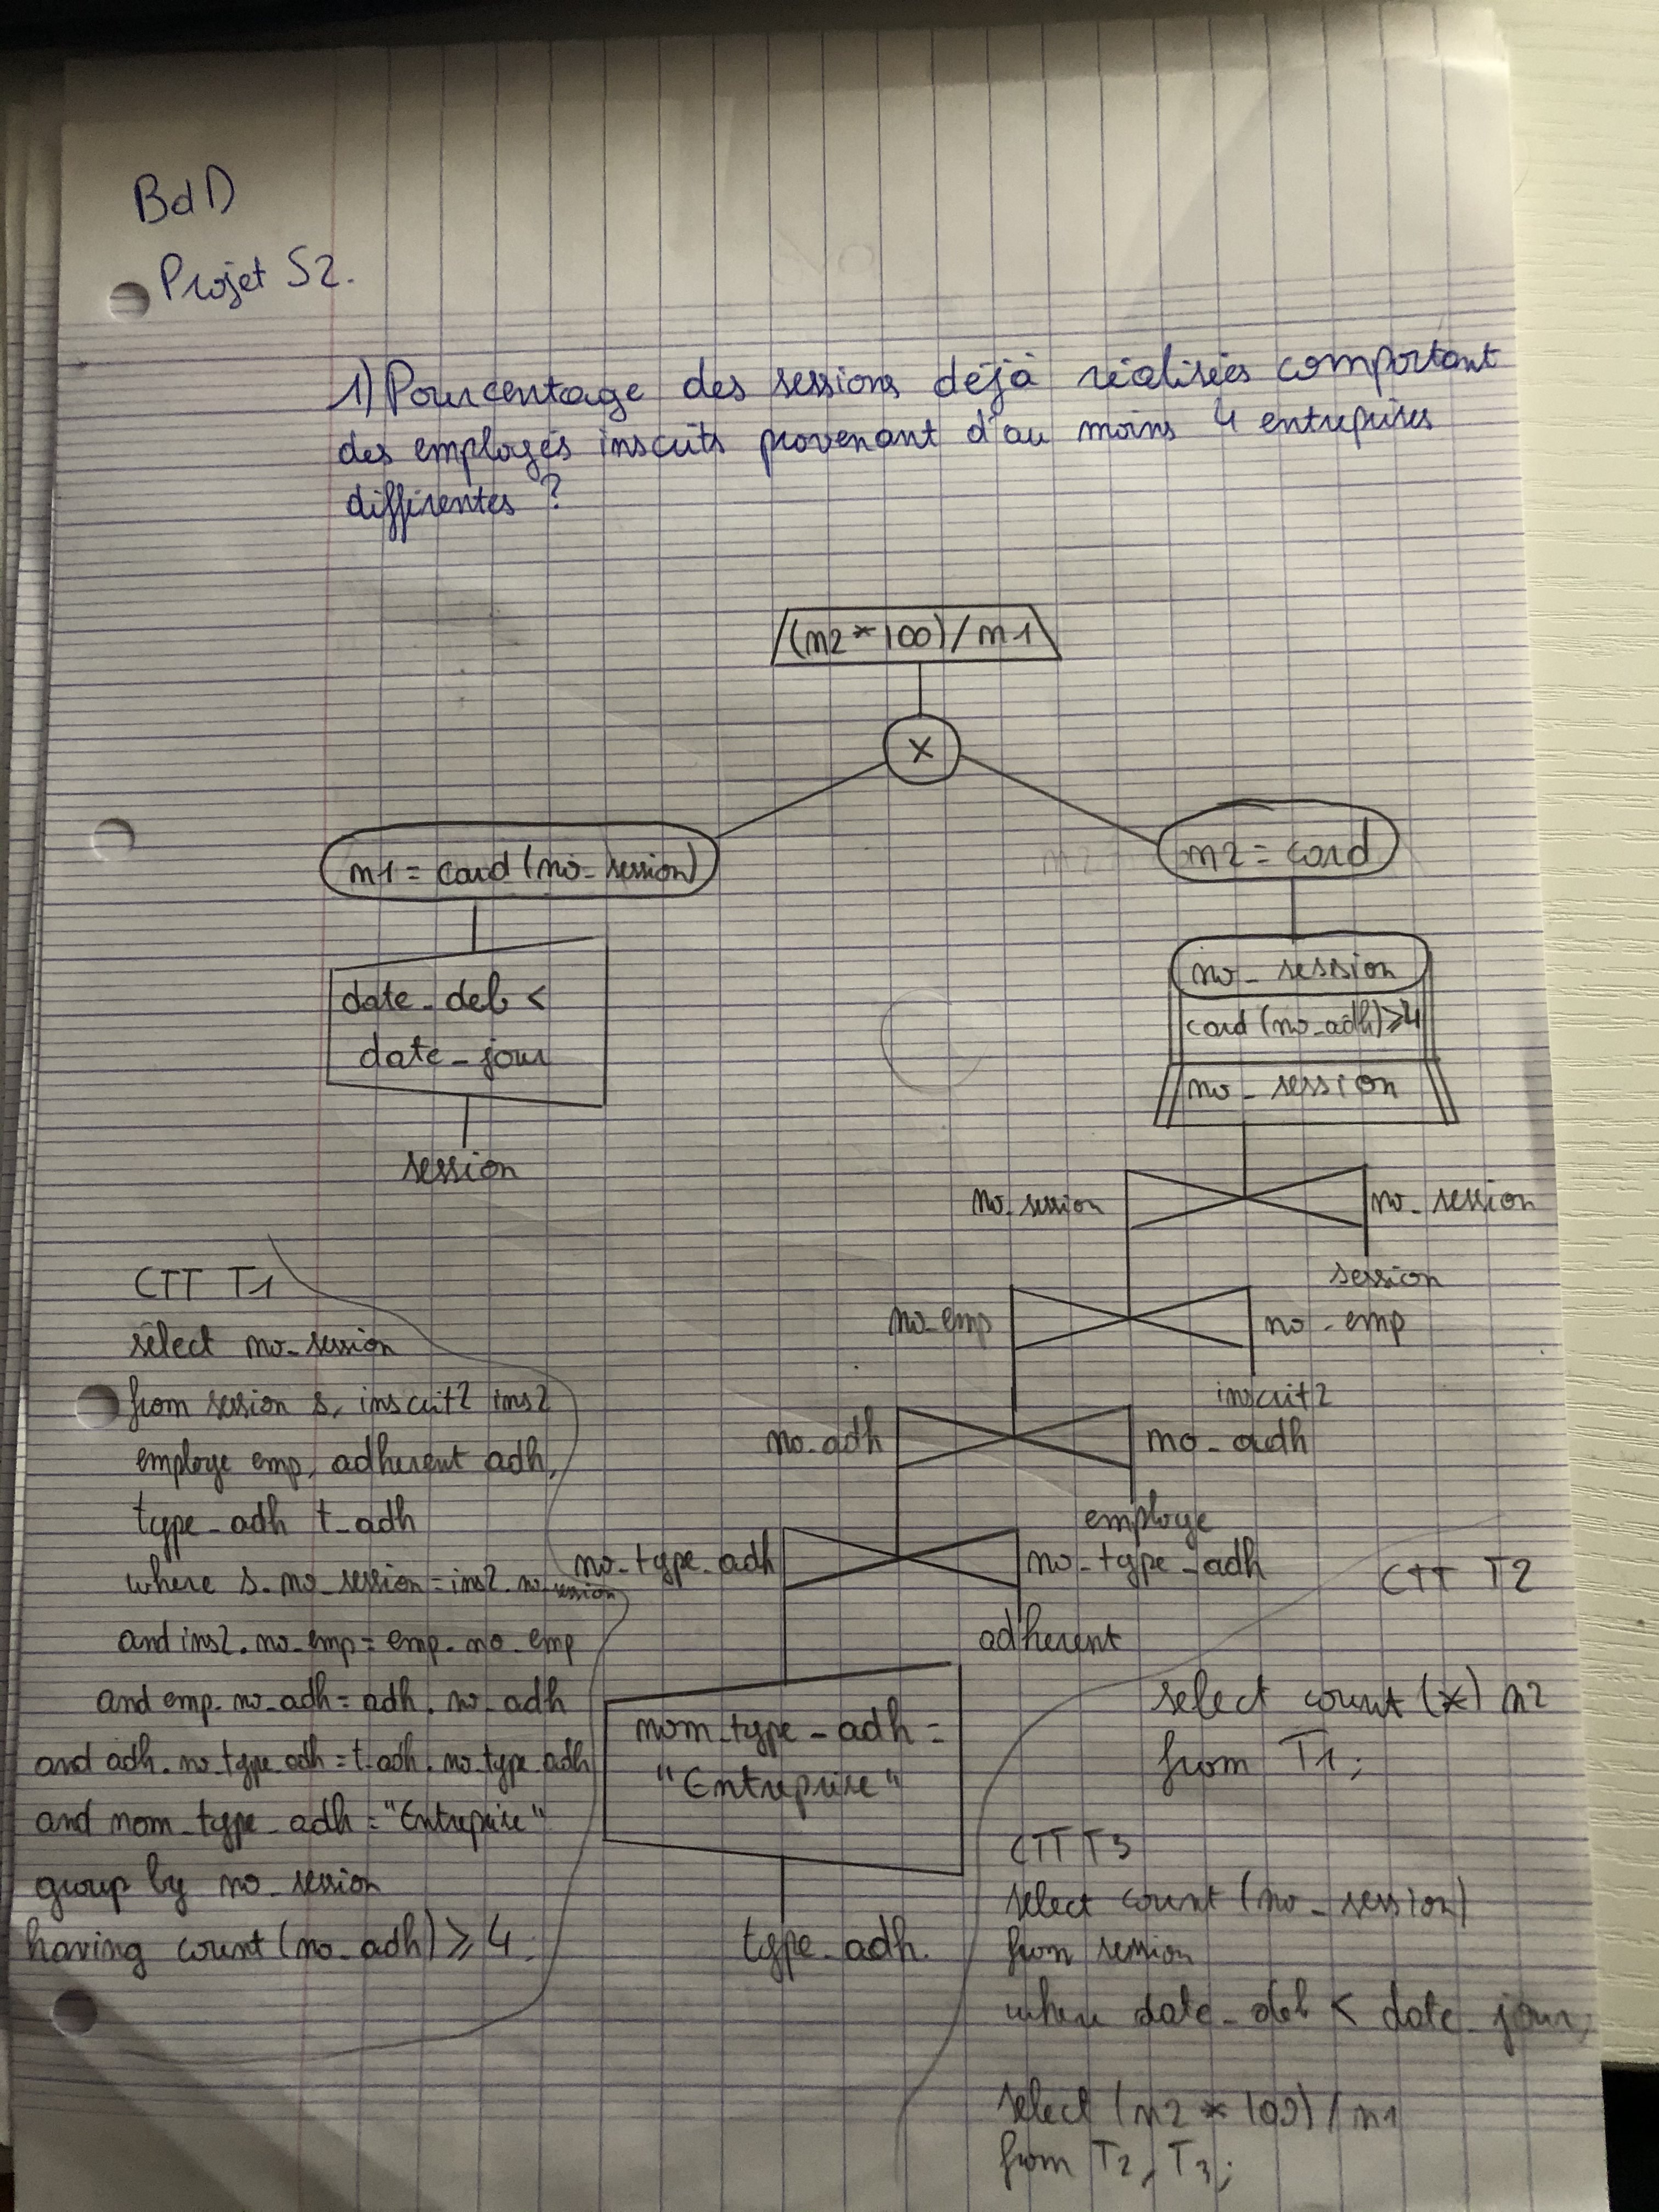 BdD
Projet S2.
1) Pourcentage des sessions déjà réalisées comportant
des employés inscrits provenant d'au moins 4 entreprises
différentes ?
(n2*100)/n1
X
n1 = card (no_session)
n2 = card
date_deb <
date_jour
session
no_session
card (no_adh) ≥ 4
no_session
no_session
no_session
session
no_emp
no_emp
inscrit2
no_adh
no_adh
employe
no_type_adh
no_type_adh
adherent
nom_type_adh =
"Entreprise"
type_adh.
CTT T1
select no_session
from session s, inscrit2 ins2
employe emp, adherent adh,
type_adh t_adh
where s.no_session = ins2.no_session
and ins2.no_emp = emp.no_emp
and emp.no_adh = adh.no_adh
and adh.no_type_adh = t_adh.no_type_adh
and nom_type_adh = "Entreprise"
group by no_session
having count (no_adh) ≥ 4;
CTT T2
select count (*) n2
from T1;
CTT T3
select count (no_session)
from session
where date_deb < date_jour;
select (n2 * 100) / n1
from T2, T3;